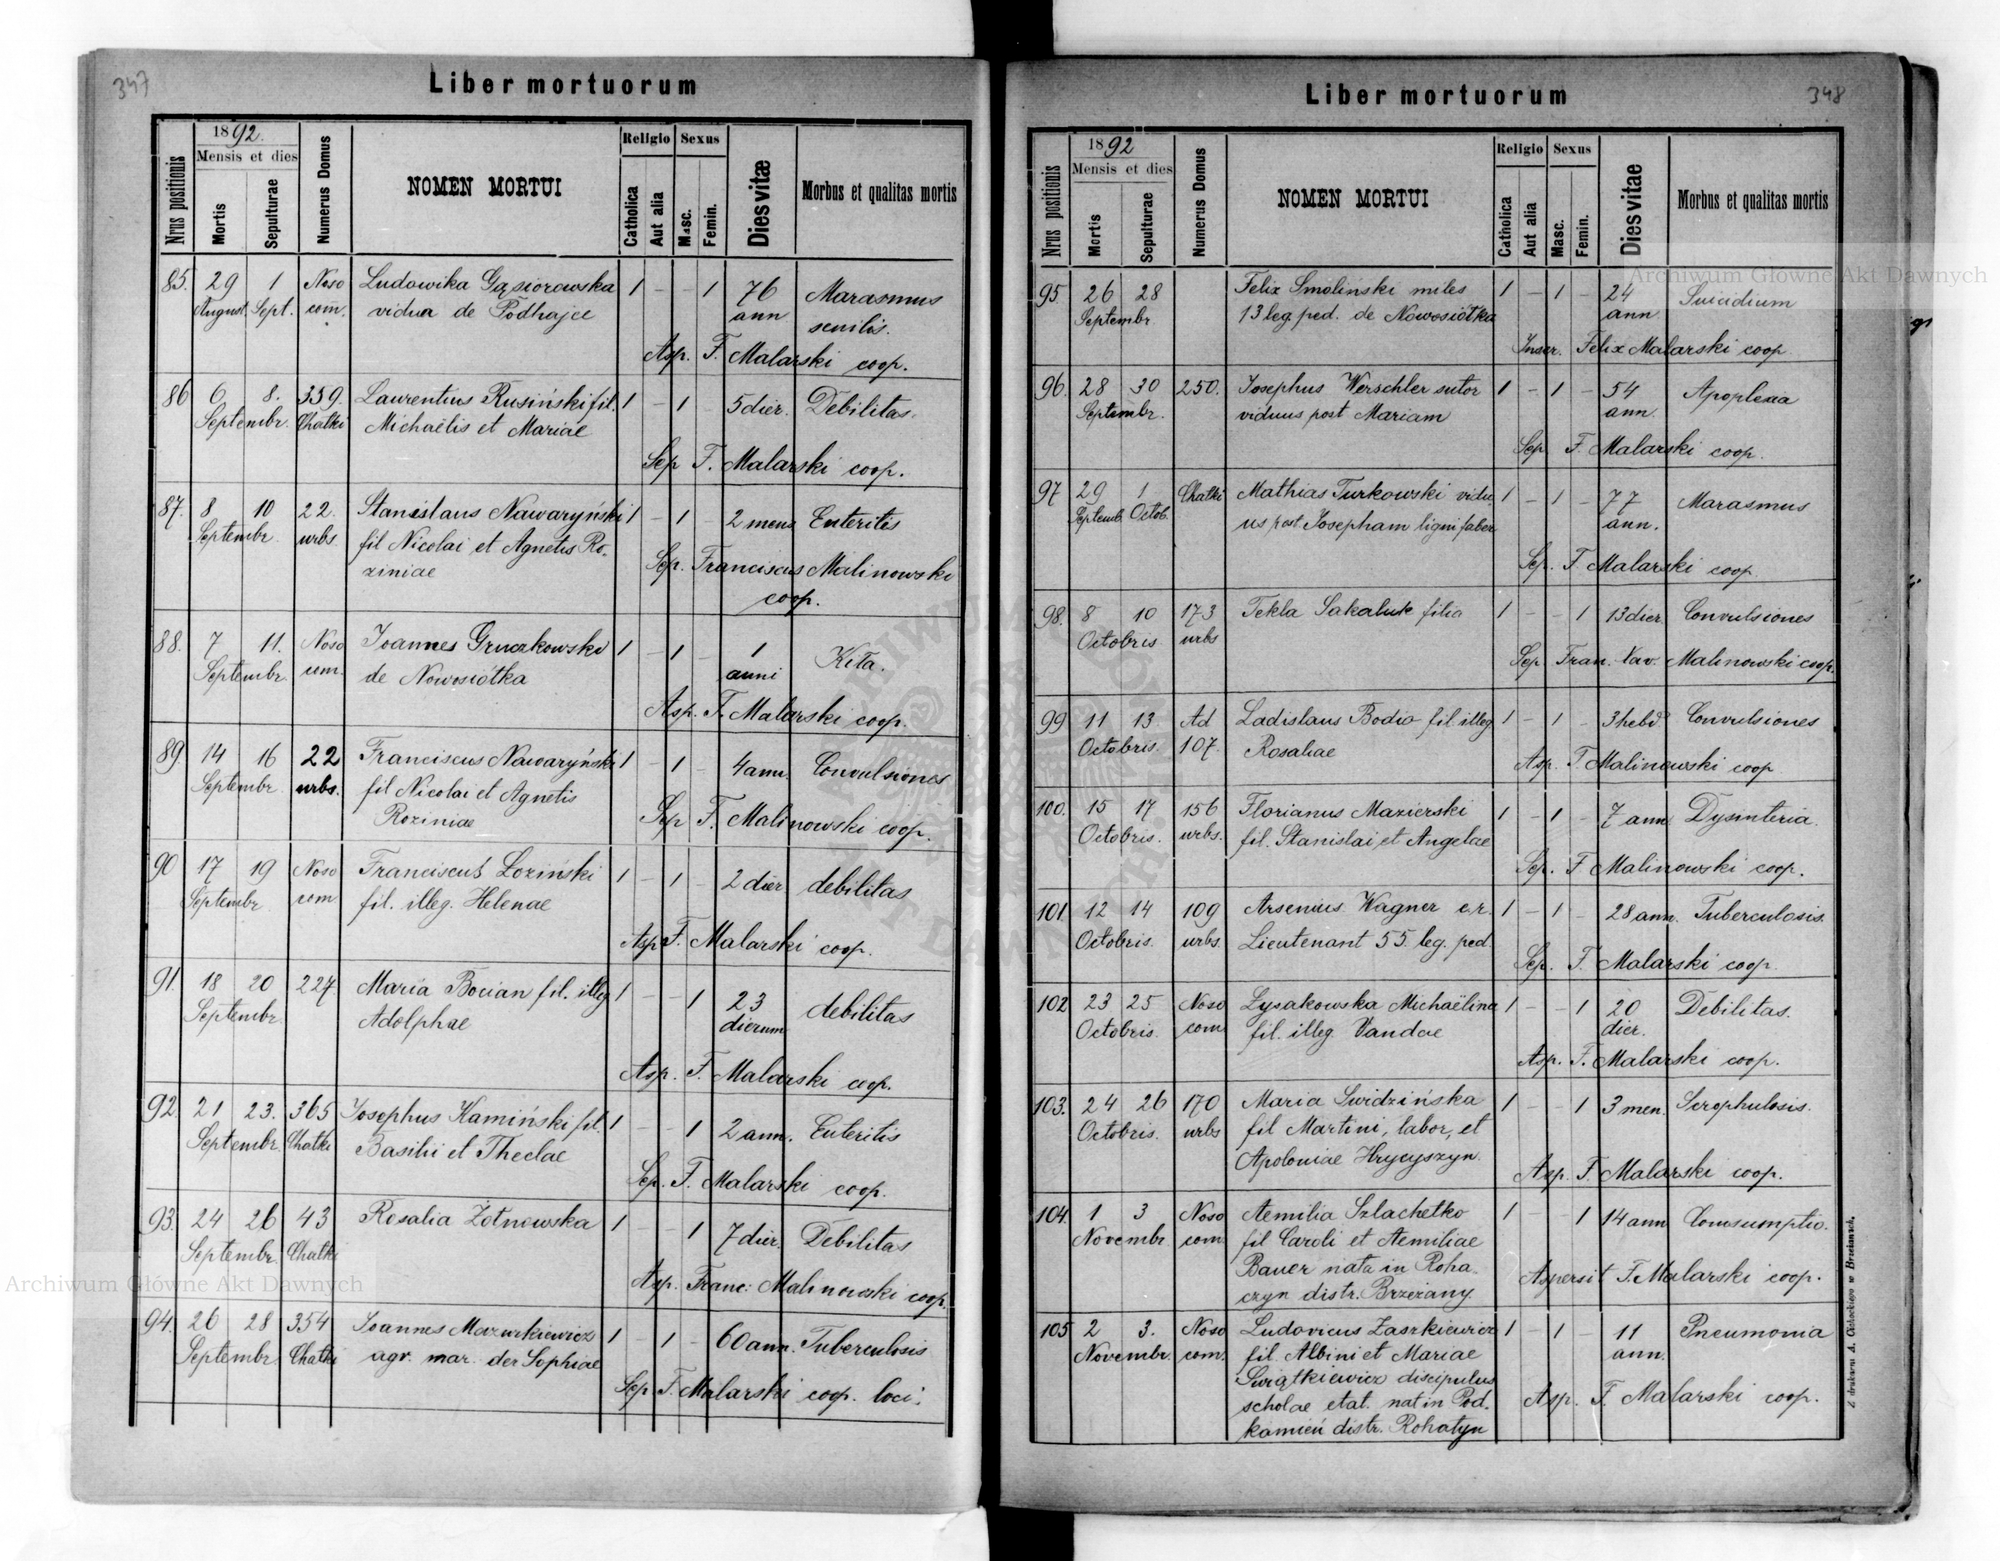 347
Liber mortuorum
Nrus positionis
1892.
Mensis et dies
Mortis
Sepulturae
Numerus Domus
NOMEN MORTUI
Religio
Catholica
Aut alia
Sexus
Masc.
Femin.
Dies vitæ
Morbus et qualitas mortis
85. 29 1 Noso Ludowika Gąsiorowska 1 - - 1 76 Marasmus
August. Sept. com. vidua de Podhajce ann senilis.
Asp. F. Malarski coop.
86 6 8. 359. Laurentius Rusiński fil. 1 - 1 - 5 dier. Debilitas.
Septembr. Chatki Michaëlis et Mariae
Sep F. Malarski coop.
87. 8 10 22. Stanislaus Nawaryński 1 - 1 - 2 mens Enteritis
Septembr. urbs fil Nicolai et Agnetis Ro-
ziniae
Sep. Franciscus Malinowski
coop.
88. 7 11. Noso Joannes Gruczkowski 1 - 1 - 1
Septembr. com. de Nowosiółka anni
Asp. F. Malarski coop.
89. 14 16 22 Franciscus Nawaryński 1 - 1 - 4 ann. Convulsiones
Septembr urbs. fil Nicolai et Agnetis
Roziniae
Sep F. Malinowski coop.
90 17 19 Noso Franciscus Loziński 1 - 1 - 2 dier. debilitas
Septembr com fil. illeg. Helenae
Asp F. Malarski coop.
91. 18 20 227 Maria Bocian fil. illeg 1 - - 1 23 debilitas
Septembr. Adolphae dierum
Asp. F. Malarski coop.
92. 21 23. 365 Josephus Kamiński fil. 1 - - 1 2 ann. Enteritis
Septembr. Chatki Basilii et Theclae
Sep. F. Malarski coop.
93. 24 26 43 Rosalia Żotnowska 1 - - 1 7 dier. Debilitas
Septembr. Chatki
Asp. Franc: Malinowski coop.
94. 26 28 354 Joannes Mazurkiewicz 1 - 1 - 60 ann. Tuberculosis
Septembr. Chatki agr. mar. der Sophiae
Sep. F. Malarski coop. loci.
348
Liber mortuorum
Nrus positionis
1892
Mensis et dies
Mortis
Sepulturae
Numerus Domus
NOMEN MORTUI
Religio
Catholica
Aut alia
Sexus
Masc.
Femin.
Dies vitæ
Morbus et qualitas mortis
95. 26 28 Felix Smoliński miles 1 - 1 - 24 Suicidium
Septembr. 13 leg. ped. de Nowosiółka ann.
Inser. Felix Malarski coop.
96. 28 30 250. Josephus Werschler sutor 1 - 1 - 54 Apoplexia
Septembr. viduus post Mariam ann.
Sep F. Malarski coop.
97 29 1 Chatki Mathias Turkowski vidu 1 - 1 - 77 Marasmus
Septemb. Octob. us post Josepham lignifaber ann.
Sep. F Malarski coop
98. 8 10 173 Tekla Sakaluk filia 1 - - 1 13 dier. Convulsiones
Octobris urbs
Sep. Fran. Xav. Malinowski coop.
99 11 13. Ad Ladislaus Bodio fil. illeg. 1 - 1 - 3 hebd Convulsiones
Octobris. 107. Rosaliae
Asp. F Malinowski coop
100. 15 17 156 Florianus Mazierski 1 - 1 - 7 ann Dysinteria.
Octobris. urbs. fil. Stanislai et Angelae
Sep. F Malinowski coop.
101. 12 14 109 Arsenius Wagner c.r. 1 - 1 - 28 ann. Tuberculosis.
Octobris. urbs. Lieutenant 55. leg. ped.
Sep. F. Malarski coop.
102 23 25 Noso Lysakowska Michaëlina 1 - - 1 20 Debilitas.
Octobris. com fil. illeg. Vandae dier.
Asp. F. Malarski coop.
103. 24 26 170 Maria Swidzińska 1 - - 1 3 men. Scrophulosis.
Octobris. urbs fil Martini, labor, et
Apoloniae Hrycyszyn.
Asp. F. Malarski coop.
104. 1 3 Noso Aemilia Szlachetko 1 - - 1 14 ann Comsumptio.
Novembr. com. fil Caroli et Aemiliae
Bauer nata in Roha-
czyn distr. Brzeżany.
Aspersit F. Malarski coop.
105 2 3. Noso Ludovicus Zaszkiewicz 1 - 1 - 11 Pneumonia
Novembr. com. fil. Albini et Mariae ann.
Swiątkiewicz discipulus
scholae etat. nat in Pod-
kamień distr. Rohatyn
Asp. F. Malarski coop.
Z drukarni A. Cichockiego w Brzeżanach.
Archiwum Główne Akt Dawnych
Archiwum Główne Akt Dawnych